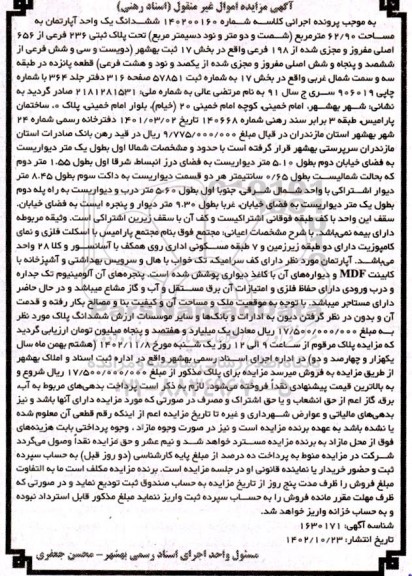 آگهی مزایده اموال غیر منقول (اسناد رهنی)
به موجب پرونده اجرائی کلاسه شماره ۱۴۰۲۰۰۱۶۰ ششدانگ یک واحد آپارتمان به
مساحت ۶۲/۹۰ مترمربع (شصت و دو متر و نود دسیمتر مربع) تحت پلاک ثبتی ۲۳۶ فرعی از ۶۵۶
اصلی مفروز و مجزی شده از ۱۹۸ فرعی واقع در بخش ۱۷ ثبت بهشهر (دویست و سی و شش فرعی از
ششصد و پنجاه و شش اصلی مفروز و مجزی شده از یکصد و نود و هشت فرعی) قطعه پانزده در طبقه
سه و سمت شمال غربی واقع در بخش ۱۷ به شماره ثبت ۵۷۸۵۱ صفحه ۳۱۶ دفتر جلد ۳۶۴ با شماره
چاپی ۹۰۶۰۱۹ سری ج سال ۹۱ به نام مرتضی عالی به شماره ملی: ۲۱۸۱۲۸۱۵۳۱ صادر گردید به
نشانی: شهر بهشهر، امام خمینی، کوچه امام خمینی ۲۰ (خیام)، بلوار امام خمینی، پلاک ۰، ساختمان
پارامیس، طبقه ۳ برابر سند رهنی شماره ۱۴۰۶۶۸ تاریخ ۱۴۰۱/۰۳/۰۲ دفترخانه رسمی شماره ۲۴
شهر بهشهر استان مازندران در قبال مبلغ ۹/۷۷۵/۰۰۰/۰۰۰ ریال در قید رهن بانک صادرات استان
مازندران سرپرستی بهشهر قرار گرفته است با حدود و مشخصات شمالا اول بطول یک متر دیواریست
به فضای خیابان دوم بطول ۵.۱۰ متر دیواریست به فضای درز انبساط. شرقا اول بطول ۱.۵۵ متر دوم
که بحالت شمالیست ۰/۶۵ سانتیمتر هر دو قسمت دیواریست به داکت سوم بطول ۸.۴۵ متر
دیوار اشتراکی با واحد سمت شرقی جنوبا اول بطول ۵.۶۰ متر درب و دیواریست به راه پله دوم
بطول یک متر دیواریست به فضای خیابان. غربا بطول ۹.۳۰ متر دیوار و پنجره ایست به فضای خیابان.
سقف این واحد با کف طبقه فوقانی اشتراکیست و کف آن با سقف زیرین اشتراکی است. وثیقه مربوطه
دارای بیمه نمی‌باشد. شرح مشخصات اعیانی: مجتمع فوق بنام مجتمع پارامیس با اسکلت فلزی و نمای
کامپوزیت دارای دو طبقه زیرزمین و ۷ طبقه مسکونی اداری روی همکف با آسانسور و کلا ۲۸ واحد
می‌باشد. آپارتمان مورد نظر دارای کف سرامیک، تک خواب با هال و سرویس بهداشتی و آشپزخانه با
کابینت MDF و دیواره‌های آن با کاغذ دیواری پوشش شده است. پنجره‌های آن آلومینیوم تک جداره
و درب ورودی دارای حفاظ فلزی و امتیازات آن برق مستقل و آب و گاز مشاع میباشد و در حال حاضر
دارای مستاجر میباشد. با توجه به موقعیت ملک و مساحت آن و کیفیت بنا و مصالح بکار رفته و قدمت
آن و بدون در نظر گرفتن دیون به ادارات و بانکها و سایر موسسات ارزش ششدانگ پلاک مورد نظر
به مبلغ ۱۷/۵۰۰/۰۰۰/۰۰۰ ریال معادل یک میلیارد و هفتصد و پنجاه میلیون تومان ارزیابی گردید
که مزایده پلاک مرقوم از ساعت ۹ الی ۱۲ روز یک شنبه مورخ ۱۴۰۲/۱۱/۸ (هشتم بهمن ماه سال
یکهزار و چهارصد و دو) در اداره اجرای اسناد رسمی بهشهر واقع در اداره ثبت اسناد و املاک بهشهر
از طریق مزایده به فروش میرسد مزایده برای پلاک مذکور از مبلغ ۱۷/۵۰۰/۰۰۰/۰۰۰ ریال شروع و
به بالاترین قیمت پیشنهادی نقداً فروخته میشود. لازم به ذکر است پرداخت بدهی‌های مربوط به آب،
برق، گاز اعم از حق انشعاب و یا حق اشتراک و مصرف در صورتی که مورد مزایده دارای آنها باشد و نیز
بدهی‌های مالیاتی و عوارض شهرداری و غیره تا تاریخ مزایده اعم از اینکه رقم قطعی آن معلوم شده
یا نشده باشد به عهده برنده مزایده است و نیز در صورت وجود مازاد، وجوه پرداختی بابت هزینه‌های
فوق از محل مازاد به برنده مزایده مسترد خواهد شد و نیم عشر و حق مزایده نقداً وصول می‌گردد
شرکت در مزایده منوط به پرداخت ده درصد از مبلغ پایه کارشناسی (دو روز قبل) به حساب سپرده
ثبت و حضور خریدار یا نماینده قانونی او در جلسه مزایده است. برنده مزایده مکلف است ما به التفاوت
مبلغ فروش را ظرف مدت پنج روز از تاریخ مزایده به حساب صندوق ثبت تودیع نماید و در صورتی که
ظرف مهلت مقرر مانده فروش را به حساب سپرده ثبت واریز ننماید مبلغ مذکور قابل استرداد نبوده
و به حساب خزانه واریز خواهد شد.
شناسه آگهی: ۱۶۳۰۱۷۱
تاریخ انتشار: ۱۴۰۲/۱۰/۲۳
مسئول واحد اجرای اسناد رسمی بهشهر - محسن جعفری